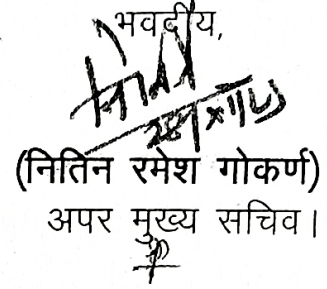 भवदीय,
(नितिन रमेश गोकर्ण)
अपर मुख्य सचिव।